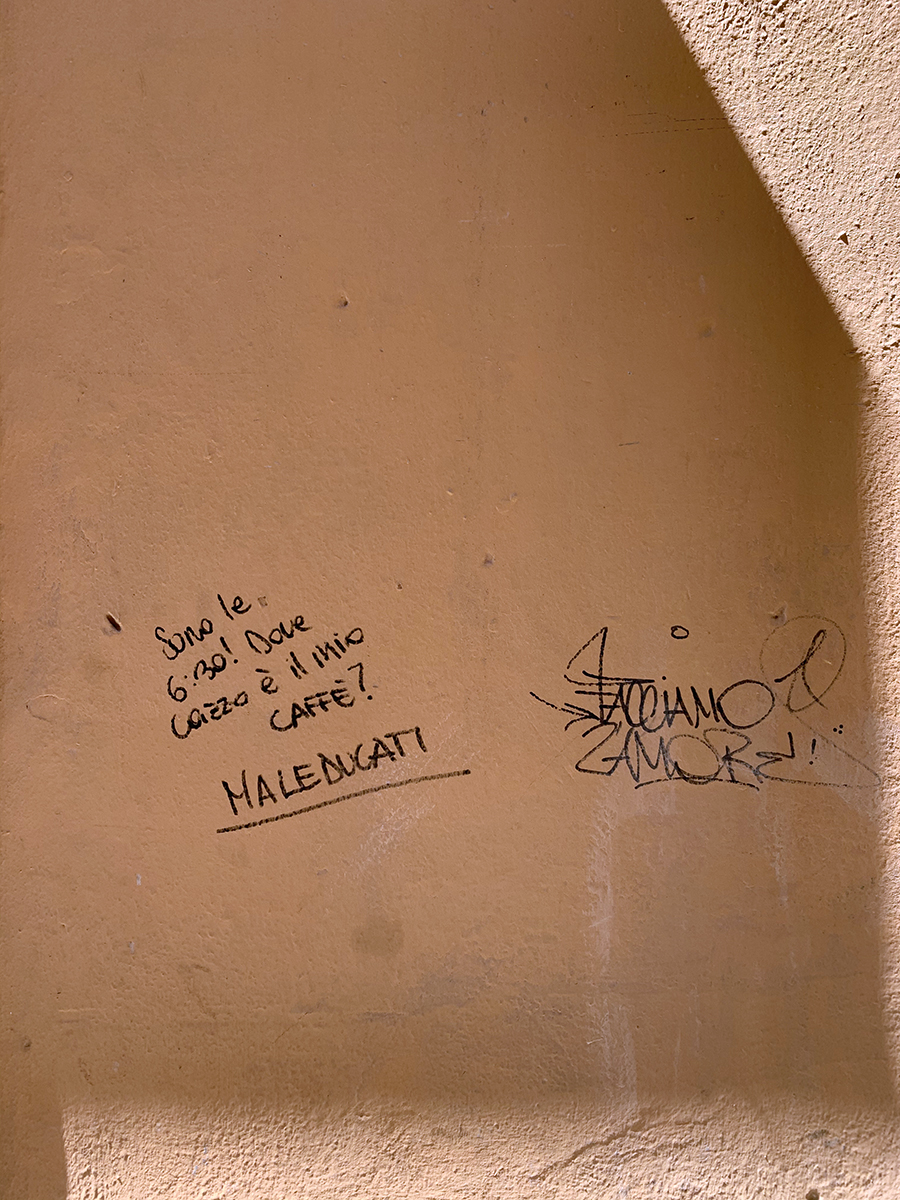 Sono le
6:30! Dove
cazzo è il mio
CAFFÈ?
MALEDUCATI
FACCIAMO
L'AMORE!